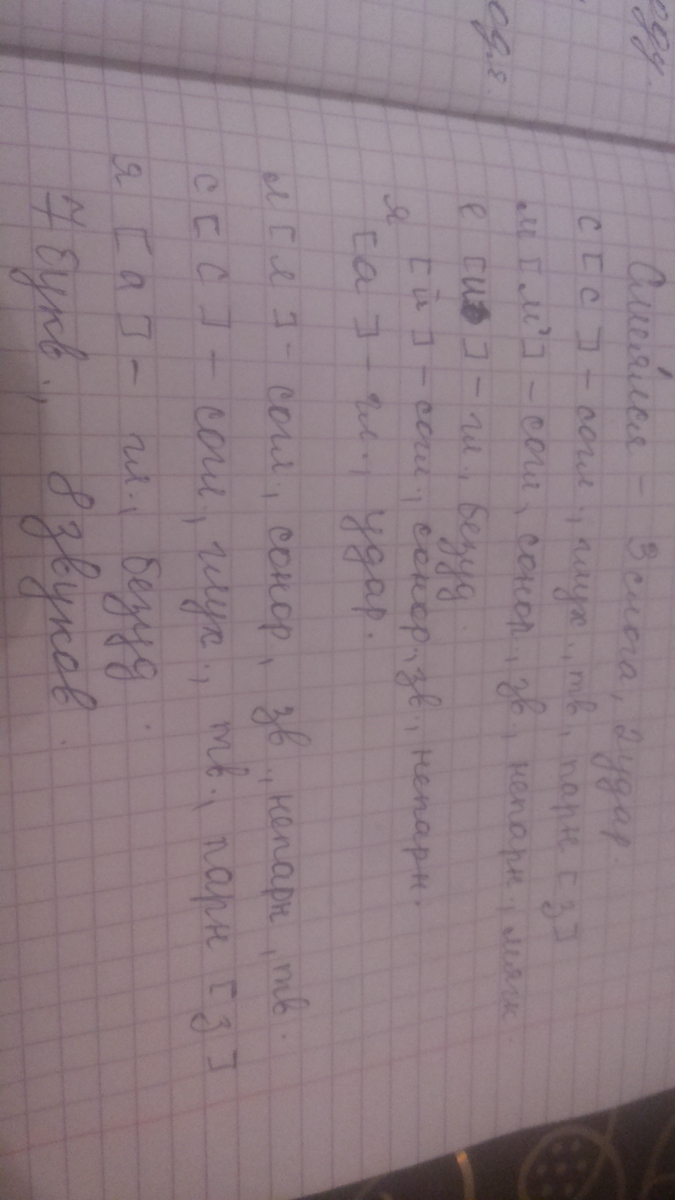 оду.
одя.
Смеялся – 3 слога, 2 удар.
с [с] – согл., глух., тв., парн [з]
м [м'] – согл, сонор, зв, непарн., мягк.
е [и] – гл, безуд.
я [й] – согл., сонор, зв., непарн.
[а] – гл., удар.
л [л] – согл., сонор, зв., непарн, тв.
с [с] – согл, глух., тв., парн [з]
я [а] – гл., безуд.
7 букв., 8 звуков.